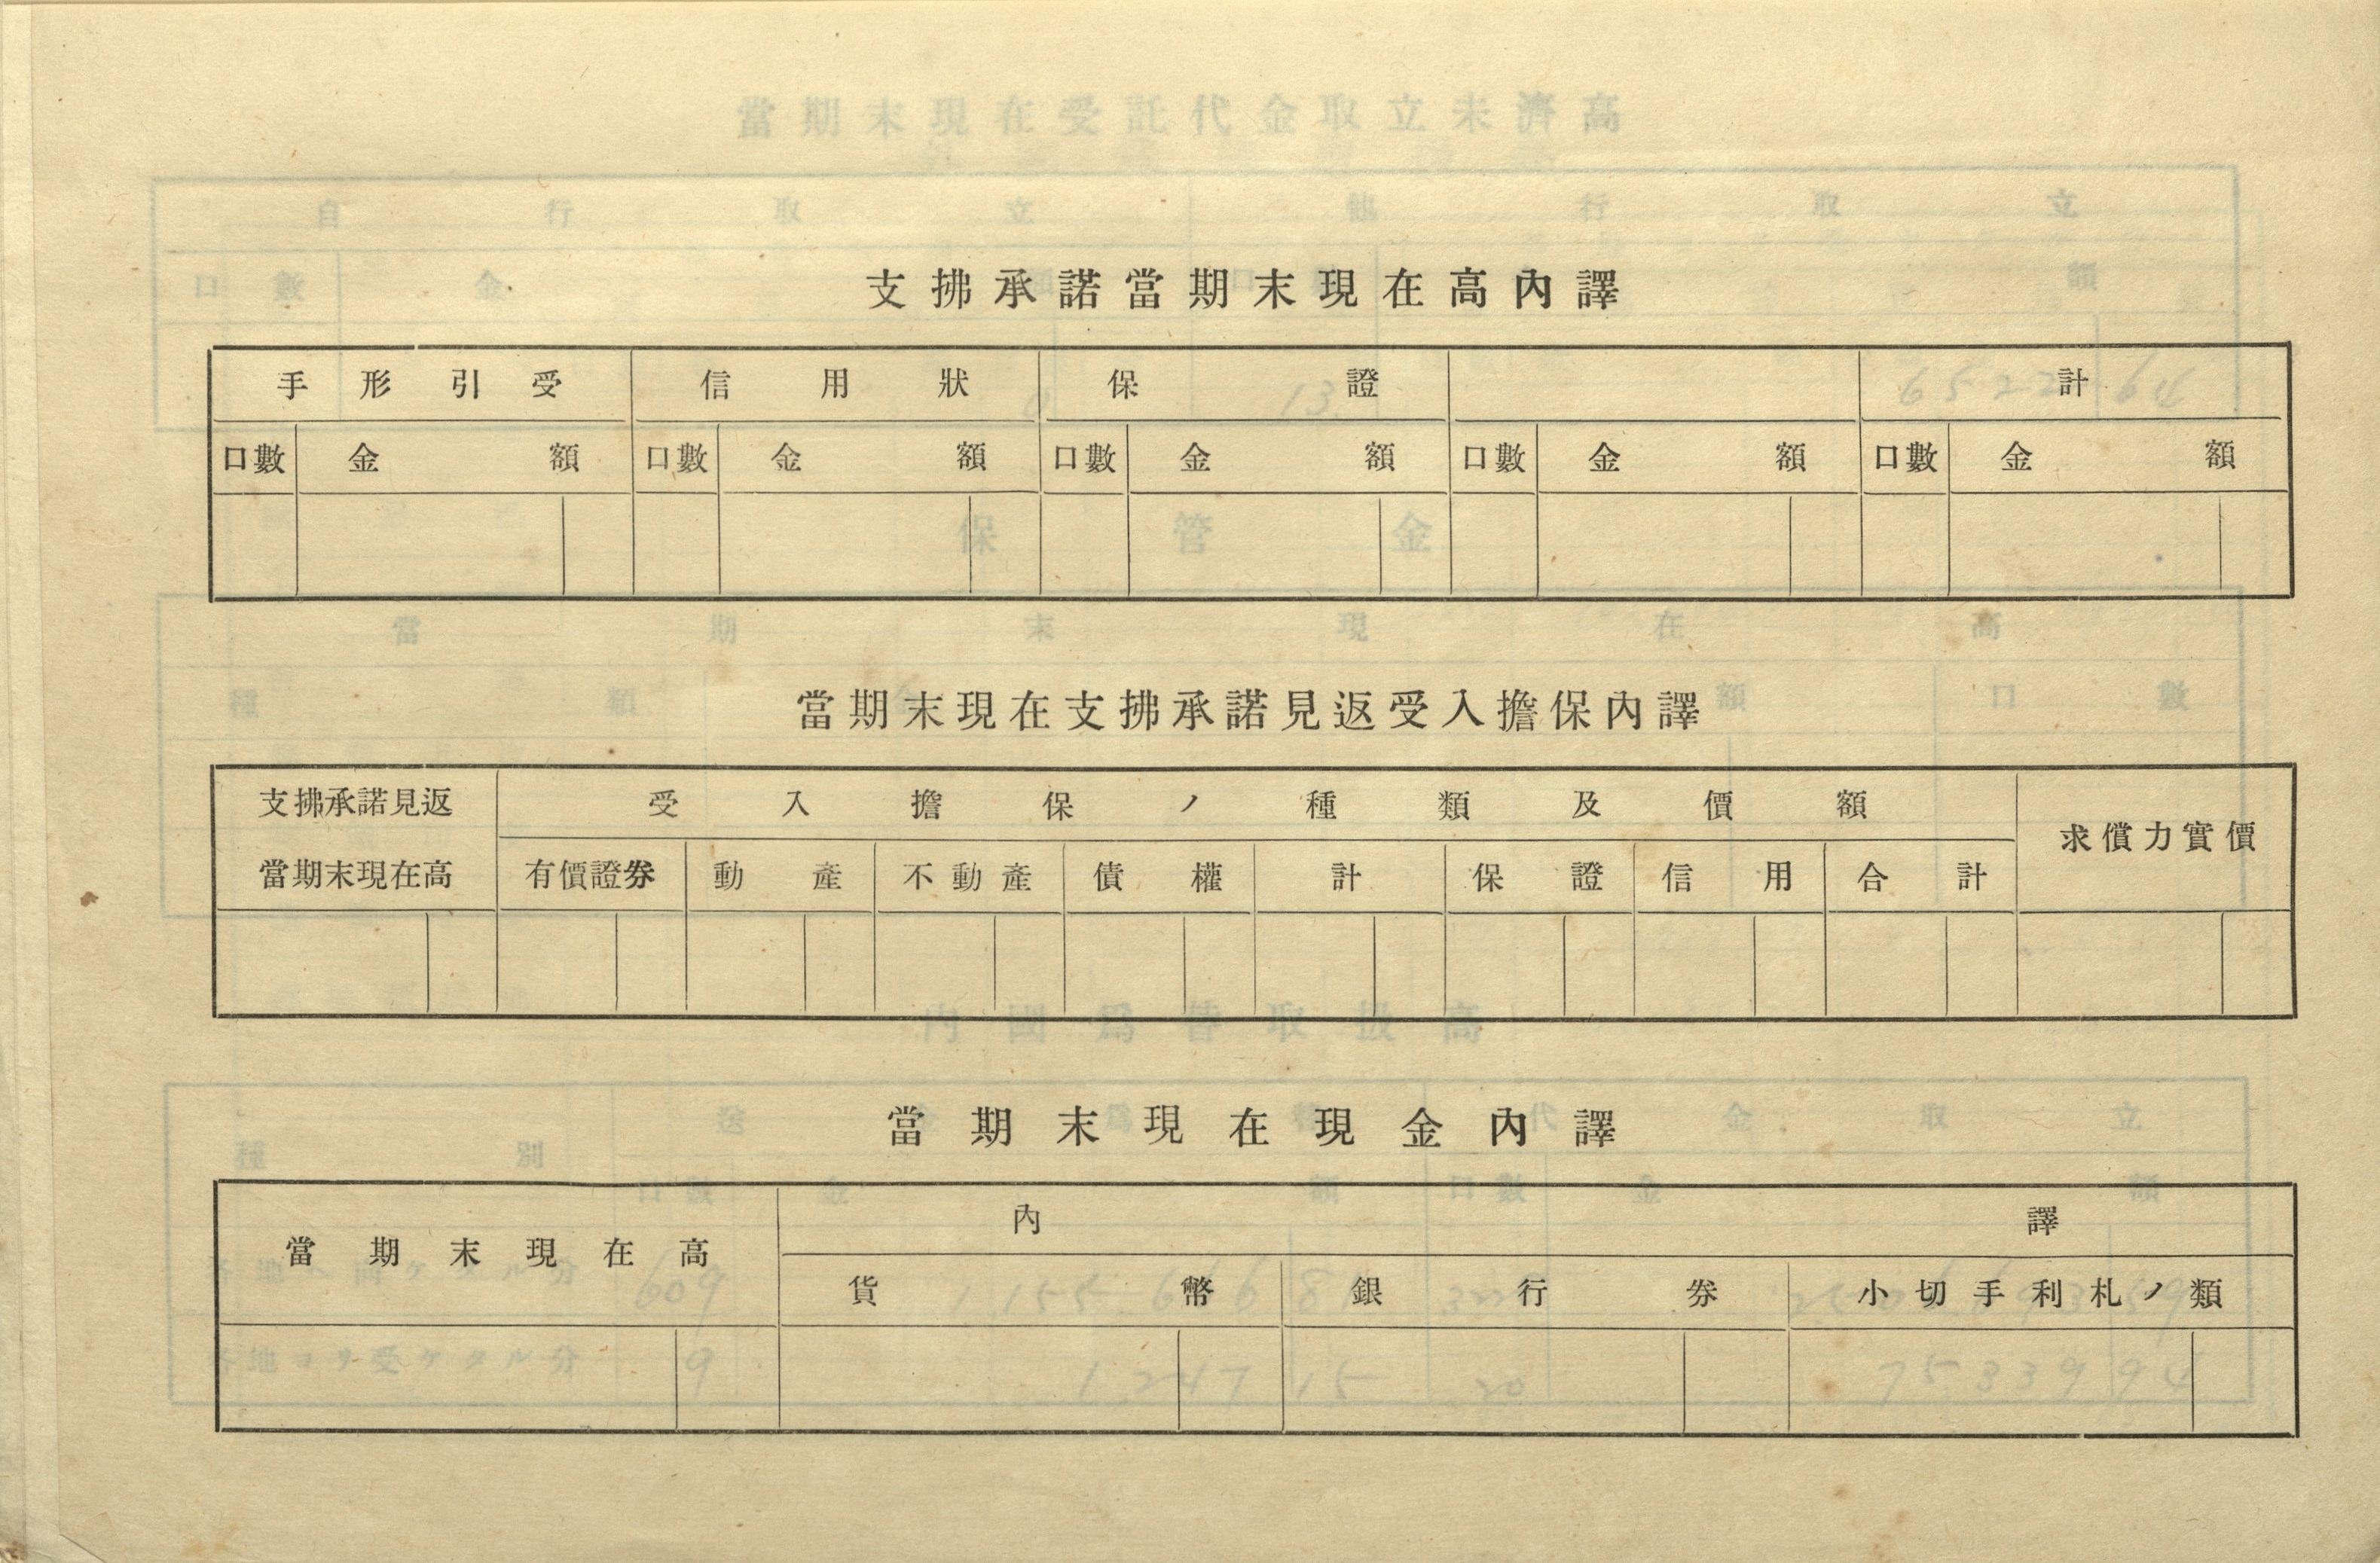 支拂承諾當期末現在高內譯
手形引受 信用狀 保證 計
口數 金額 口數 金額 口數 金額 口數 金額 口數 金額
當期末現在支拂承諾見返受入擔保內譯
支拂承諾見返 受入擔保ノ種類及價額 求償力實價
當期末現在高 有價證券 動產 不動產 債權 計 保證 信用 合計
當期末現在現金內譯
當期末現在高 內譯
貨幣 銀行券 小切手利札ノ類